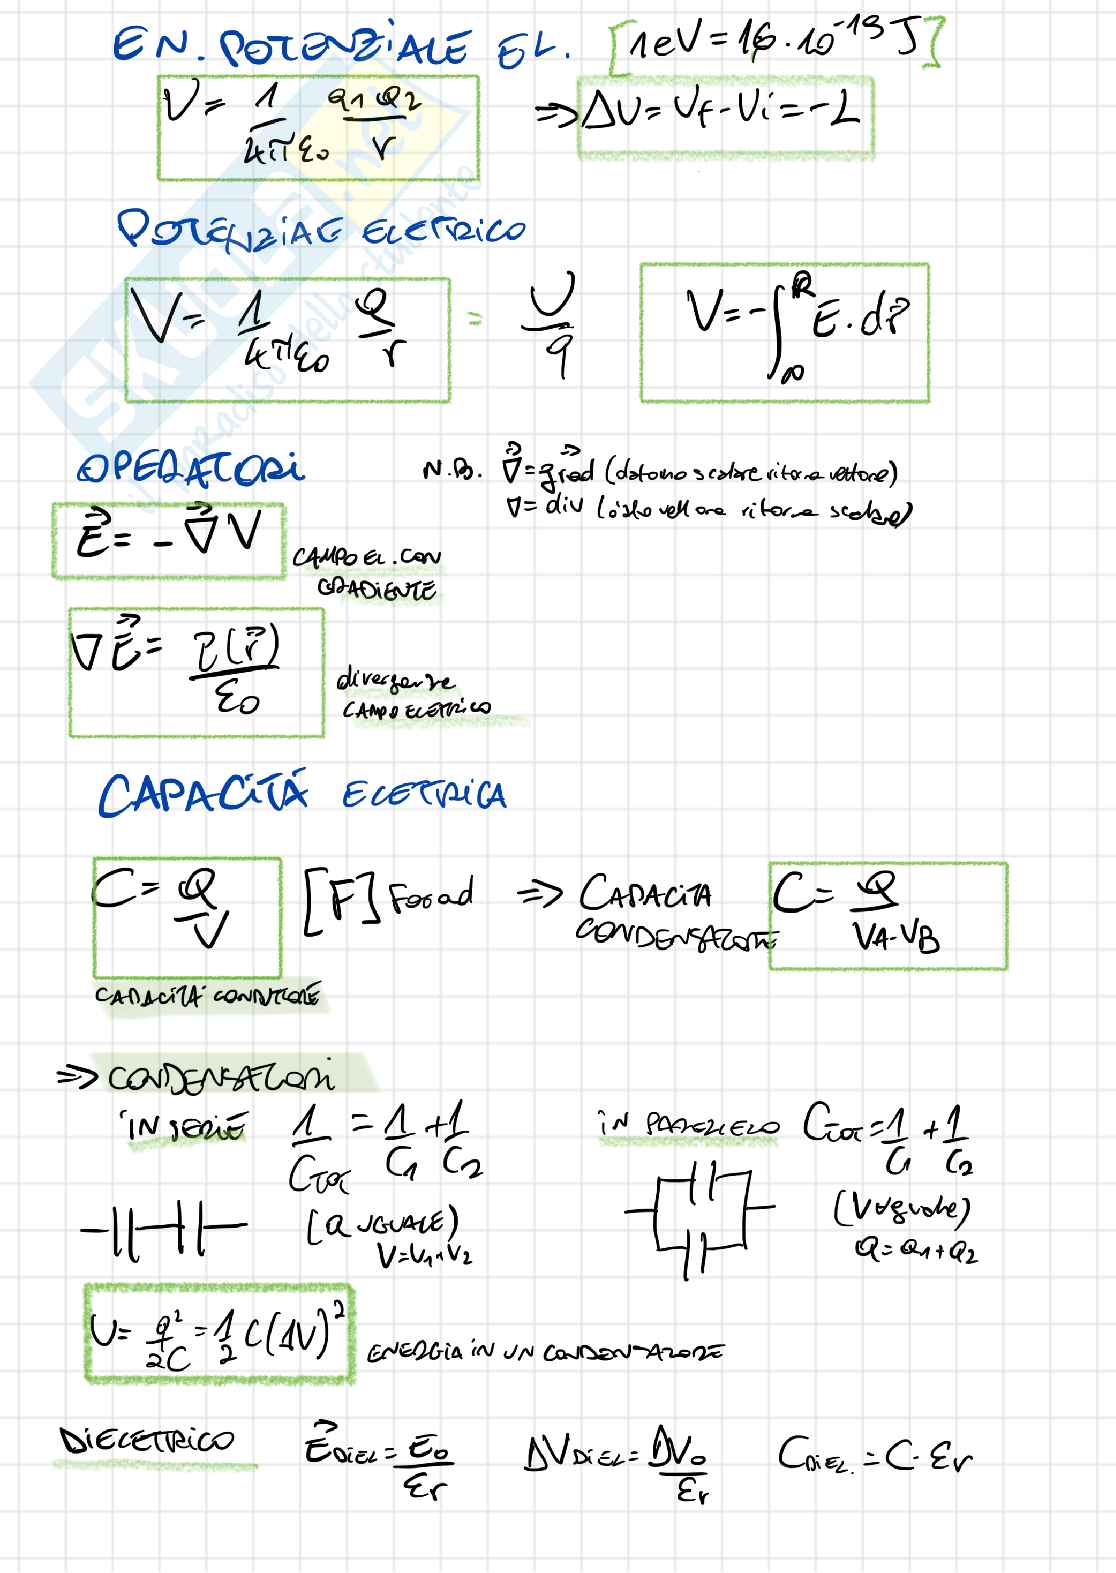 EN. POTENZIALE EL. [1eV = 1,6 · 10⁻¹⁹ J]
U = 1/(4πε₀) Q1 Q2/r ⇒ ΔU = Uf - Ui = -L
POTENZIALE ELETRICO
V = 1/(4πε₀) Q/r = U/q V = -∫_∞^R E · dr⃗
OPERATORI N.B. ∇⃗ = grad (dato uno scalare ritorna vettore)
∇ = div (dato vettore ritorna scalare)
E⃗ = -∇⃗ V
CAMPO EL. CON
GRADIENTE
∇E⃗ = ρ(r⃗)/ε₀
divergenze
CAMPO ELETRICO
CAPACITÁ ELETRICA
C = Q/V [F] Farad ⇒ CAPACITA CONDENSATORE C = Q/(VA - VB)
CAPACITÁ CONDUTTORE
⇒ CONDENSATORI
IN SERIE 1/CTOT = 1/C1 + 1/C2
IN PARALLELO CTOT = 1/C1 + 1/C2
(Q UGUALE)
V = V1 + V2
(V uguale)
Q = Q1 + Q2
U = q²/2C = 1/2 C(ΔV)² ENERGIA IN UN CONDENSATORE
DIELETTRICO E⃗DIEL = E0/εr ΔVDIEL = ΔV0/εr CDIEL. = C · εr
SKUOLA.net
il paradiso dello studente